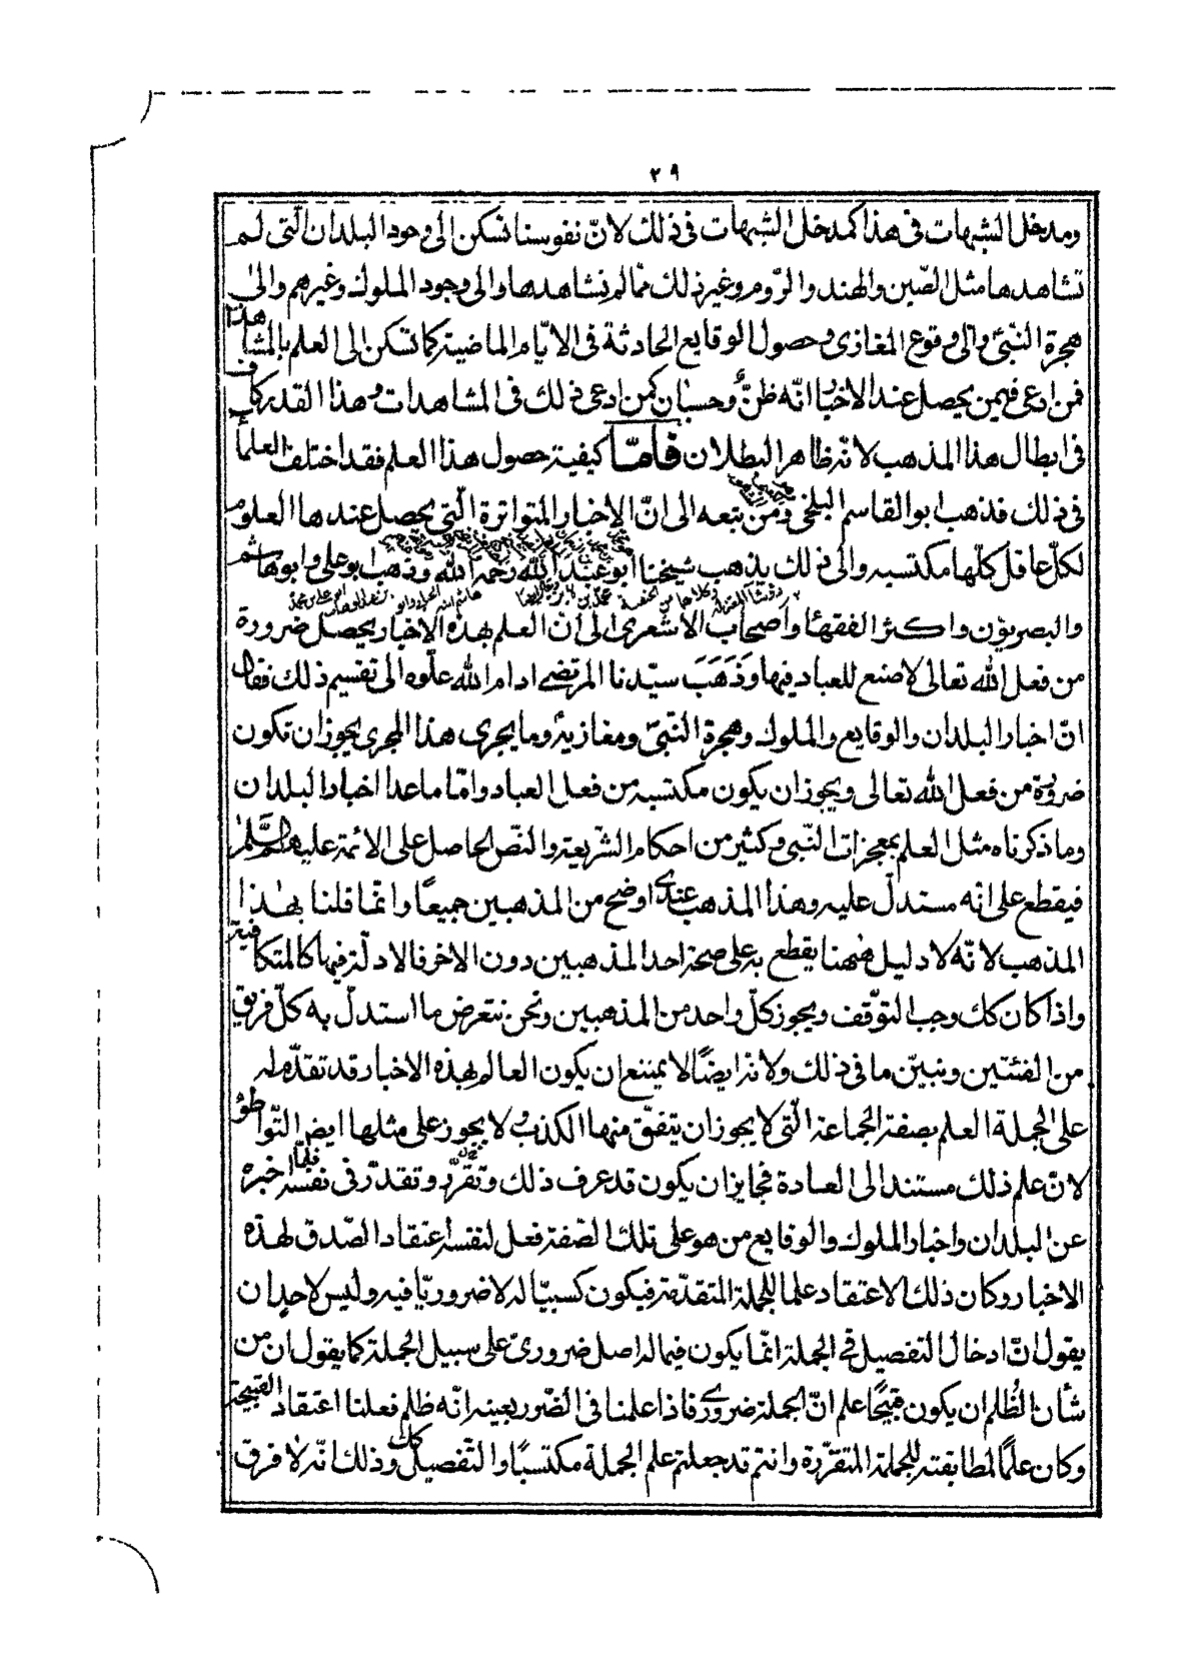 ٢٩
ومدخل الشبهات في هذا كمدخل الشبهات في ذلك لانّ نفوسنا تسكن الى وجود البلدان الّتي لم
نشاهدها مثل الصّين والهند والرّوم وغير ذلك ممّا لم نشاهدها والى وجود الملوك وغيرهم والى
هجرة النّبيّ والى وقوع المغازي وحصول الوقايع الحادثة في الايّام الماضية كما تسكن الى العلم بالمشاهدات
فمن ادعى فيمن يحصل عند الاخبار انّه ظنّ وحسبان كمن ادعى ذلك في المشاهدات وهذا القدر كاف
في ابطال هذا المذهب لانّه ظاهر البطلان فامّا كيفيّة حصول هذا العلم فقد اختلف العلمآ
في ذلك فذهب ابو القاسم البلخي ومن تبعه الى انّ الاخبار المتواترة الّتي يحصل عندها العلوم
لكلّ عاقل كلّها مكتسبه والى ذلك يذهب شيخنا ابو عبد الله رحمه الله وذهب ابو علي وابو هاشم
والبصريون واكثر الفقهآء واصحاب الاشعري الى انّ العلم بهذه الاخبار يحصل ضرورة
من فعل الله تعالى لا صنع للعباد فيها وَذَهَبَ سيّدنا المرتضى ادام الله علّوه الى تقسيم ذلك فقال
انّ اخبار البلدان والوقايع والملوك وهجرة النّبيّ ومغازيه وما يجرى هذا المجرى يجوز ان تكون
ضرورة من فعل الله تعالى ويجوز ان يكون مكتسبة من فعل العباد وامّا ما عدا اخبار البلدان
وما ذكرناه مثل العلم بمعجزات النّبي وكثير من احكام الشّريعة والنّص الحاصل على الائمّة عليهم السّلم
فيقطع على انّه مستدلّ عليه وهذا المذهب عندي اوضح من المذهبين جميعًا وانّما قلنا بهذا
المذهب لانّه لا دليل هٰهنا يقطع به على صحّة احد المذهبين دون الاخر فالادلّة فيها كالمتكافية
واذا كان كك وجب التوّقف ويجوز كلّ واحد من المذهبين ونحن نتعرض ما استدلّ به كلّ فريق
من الفئتين ونبيّن ما في ذلك ولانّه ايضًا لا يمتنع ان يكون العالم بهذه الاخبار قد تقدّم له
على الجملة العلم بصفة الجماعة الّتي لا يجوز ان يتفّق منها الكذب ولا يجوز على مثلها ايضا التّواطؤ
لانّ علم ذلك مستند الى العادة فجايز ان يكون قد عرف ذلك وتقرّر وتقدّر في نفسه فلمّا اخبره
عن البلدان واخبار الملوك والوقايع من هو على تلك الصّفة فعل لنفسه اعتقاد الصّدق لهذه
الاخبار وكان ذلك الاعتقاد علما للجملة المتقدّمة فيكون كسبيّا له لا ضروريّا فيه وليس لاحد ان
يقول انّ ادخال التفصيل في الجملة انّما يكون فيما له اصل ضروريّ على سبيل الجملة كما يقول ان من
شأن الظّلم ان يكون قبيحًا علم انّ الجملة ضروري فاذا علمنا في الضّرر بعينه انّه ظلم فعلنا اعتقاد القبيحة
وكان علمًا لمطابقته للجملة المتقرّرة وانتم قد جعلتم علم الجملة مكتسبًا والتّفصيل كك وذلك انّه لا فرق